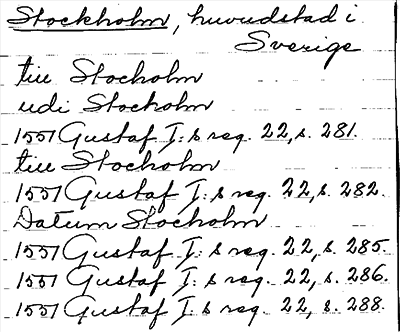 Stockholm, huvudstad i
Sverige
till Stocholm
udi Stocholm
1551 Gustaf I:s reg. 22, s. 281.
till Stocholm
1551 Gustaf I:s reg. 22, s. 282.
Datum Stocholm
1551 Gustaf I:s reg. 22, s. 285.
1551 Gustaf I:s reg. 22, s. 286.
1551 Gustaf I:s reg. 22, s. 288.